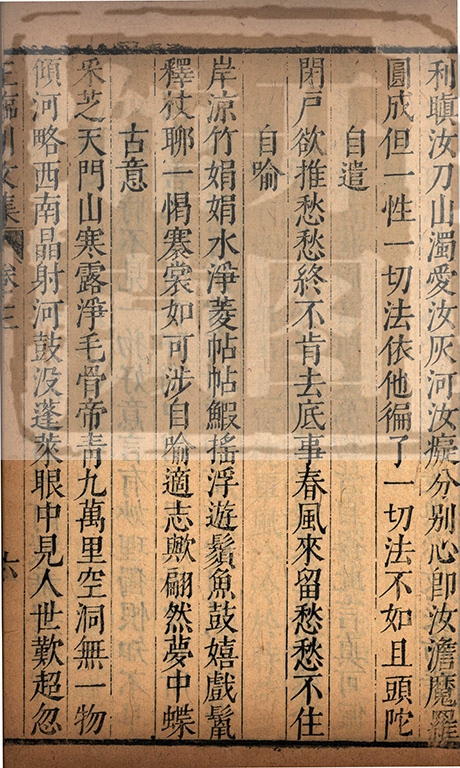 利瞋汝刀山濁愛汝灰河汝癡分別心即汝澹魔羅
圓成但一性一切法依他徧了一切法不如且頭陀
自遣
閉戸欲推愁愁終不肯去底事春風來留愁愁不住
自喻
岸涼竹娟娟水淨菱帖帖鰕搖浮遊鬚魚鼓嬉戲鬣
釋杖聊一惕褰裳如可涉自喻適志歟翩然夢中蝶
古意
采芝天門山寒露淨毛骨帝青九萬里空洞無一物
傾河略西南晶射河鼓没蓬萊眼中見人世歎超忽
王臨川文集 卷三
六